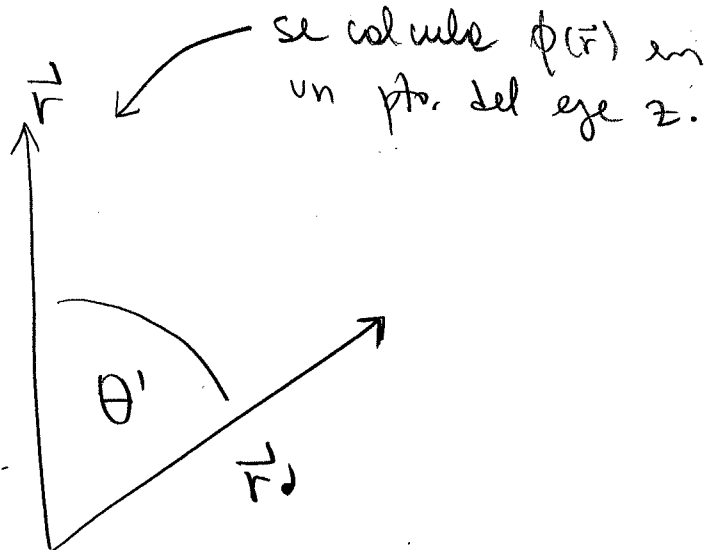 se calcula φ(r⃗) en
un pto. del eje z.
r⃗
θ'
r⃗'